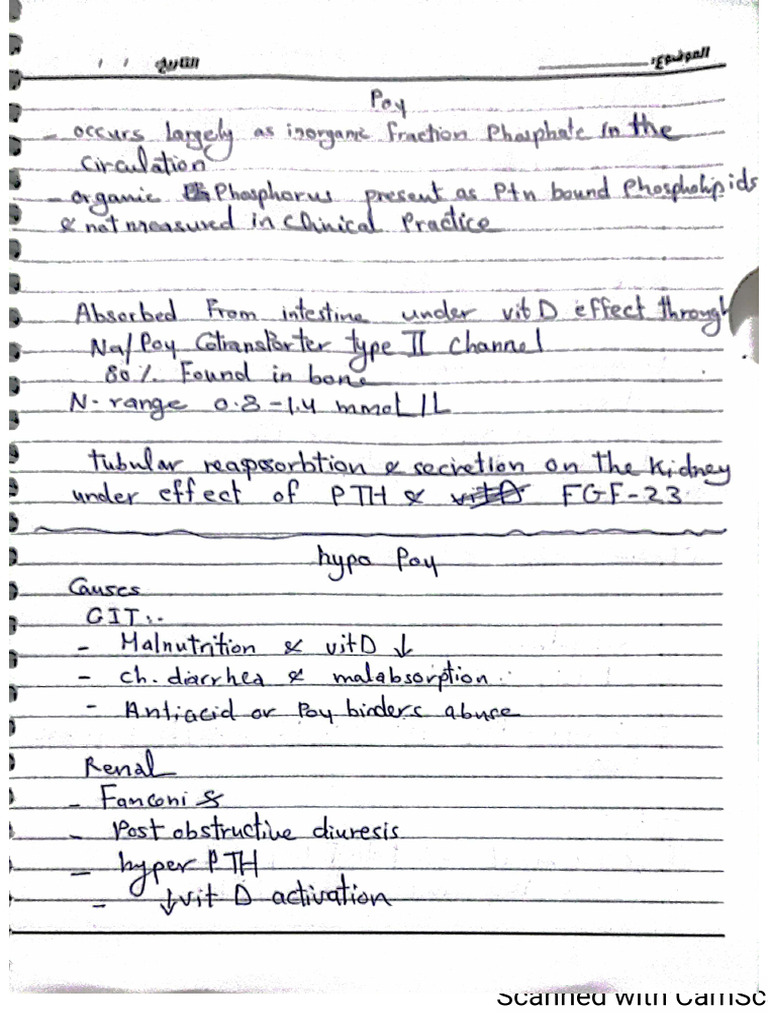 الموضوع: التاريخ / /
Po4
- occurs largely as inorganic fraction Phosphate in the
Circulation
- organic Phosphorus present as Ptn bound Phospholipids
& not measured in Clinical Practice
Absorbed From intestine under vit D effect through
Na/Po4 Cotransporter type II channel
80% Found in bone
N-range 0.8-1.4 mmol/L
tubular reapsorbtion & secretion on the Kidney
under effect of PTH & vitD FGF-23
hypo Po4
Causes
GIT:-
- Malnutrition & vitD ↓
- ch. diarrhea & malabsorption
- Antiacid or Po4 binders abuse
Renal
- Fanconi
- Post obstructive diuresis
- hyper PTH
- ↓vit D activation
Scanned with CamSc